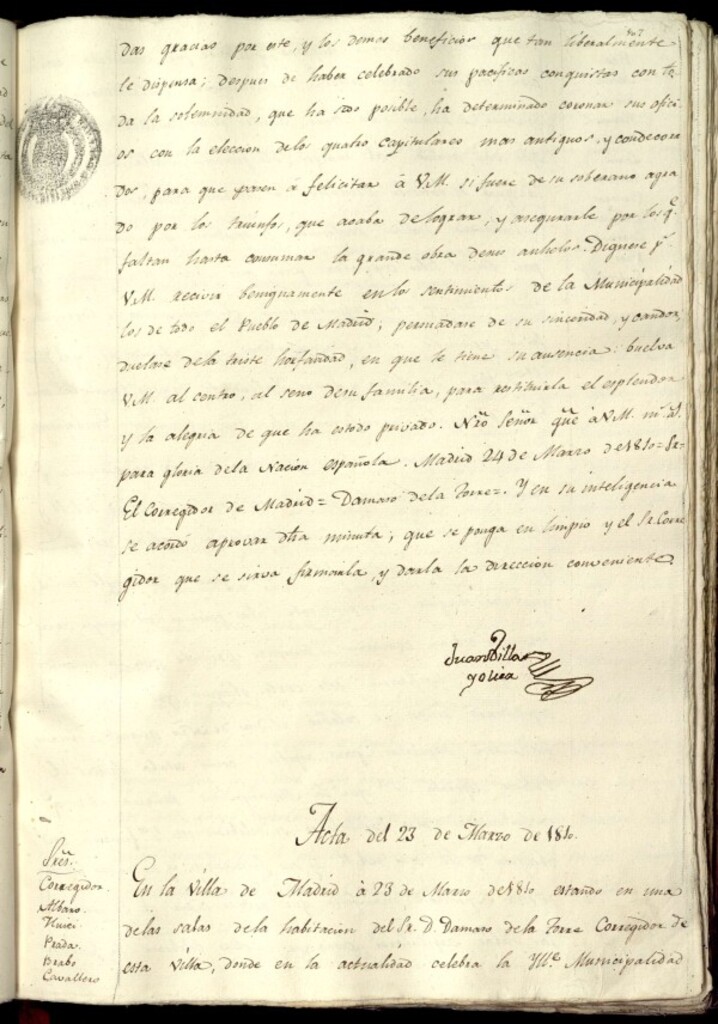 das gracias por este, y los demas beneficios que tan liberalmente
le dispensa; despues de haber celebrado sus pacificas conquistas con to-
da la solemnidad, que ha sido posible, ha determinado coronar sus ofici-
os con la eleccion delos quatro capitulares mas antiguos, y condecora-
dos, para que pasen à felicitar à V.M. si fuere de su soberano agra-
do por los triunfos, que acaba de lograr, y asegurarle por los q.e
faltan hasta consumar la grande obra desus anhelos. Dignese p.s
V.M. recivir benignamente en los sentimientos de la Municipalidad
los de todo el Pueblo de Madrid; persuadase de su sinceridad, y candor,
duelase dela triste horfandad, en que le tiene su ausencia: buelva
V.M. al centro, al seno desu familia, para restituirla el esplendor
y la alegria de que ha estado privado. Nrõ Señor gue à V.M. m.s a.s
para gloria dela Nacion española. Madrid 24 de Marzo de 1810 = Sr =
El Corregidor de Madrid = Damaso dela Torre =. Y en su inteligencia
se acordó aprovar dha minuta, que se ponga en limpio y el Sr. Corre-
gidor que se sirva firmarla, y darla la direccion conveniente.
Juan Villa
y Olier
Acta del 23 de Marzo de 1810.
Sres.
Corregidor
Alfaro.
Huici.
Prada.
Brabo
Cavallero
En la Villa de Madrid à 23 de Marzo de 1810 estando en una
delas salas de la habitacion del Sr. D. Damaso de la Torre Corregidor de
esta Villa, donde en la actualidad celebra la Yll.e Municipalidad